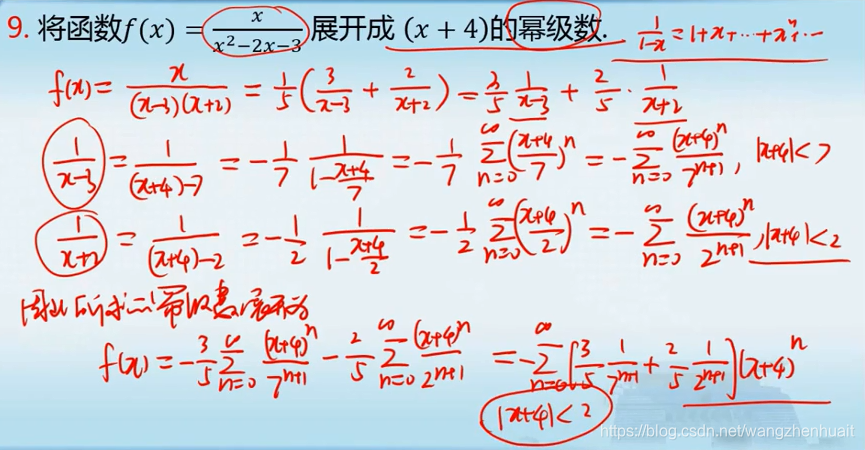 9. 将函数f(x) = x/(x²−2x−3) 展开成 (x + 4)的幂级数. 1/(1-x) = 1+x+⋯+xⁿ+⋯
f(x) = x/((x-3)(x+2)) = 1/5(3/(x-3) + 2/(x+2)) = 3/5 1/(x-3) + 2/5 · 1/(x+2)
1/(x-3) = 1/((x+4)-7) = -1/7 1/(1-(x+4)/7) = -1/7 ∑_{n=0}^{∞}((x+4)/7)ⁿ = -∑_{n=0}^{∞} (x+4)ⁿ/7ⁿ⁺¹, |x+4|<7
1/(x+2) = 1/((x+4)-2) = -1/2 1/(1-(x+4)/2) = -1/2 ∑_{n=0}^{∞}((x+4)/2)ⁿ = -∑_{n=0}^{∞} (x+4)ⁿ/2ⁿ⁺¹, |x+4|<2
因此所求的幂级数展开为
f(x) = -3/5 ∑_{n=0}^{∞} (x+4)ⁿ/7ⁿ⁺¹ - 2/5 ∑_{n=0}^{∞} (x+4)ⁿ/2ⁿ⁺¹ = -∑_{n=0}^{∞} [3/5 1/7ⁿ⁺¹ + 2/5 1/2ⁿ⁺¹](x+4)ⁿ
|x+4|<2
https://blog.csdn.net/wangzhenhuait